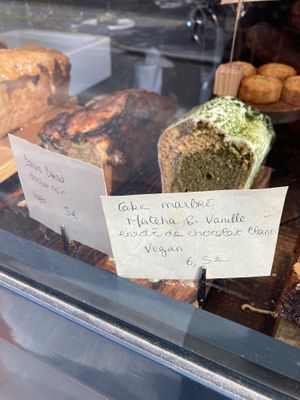 Banana Bread
chocolat noir
Vegan
5€
Cake marbré
Matcha & Vanille
enrobé de chocolat blanc
Vegan
6,5€